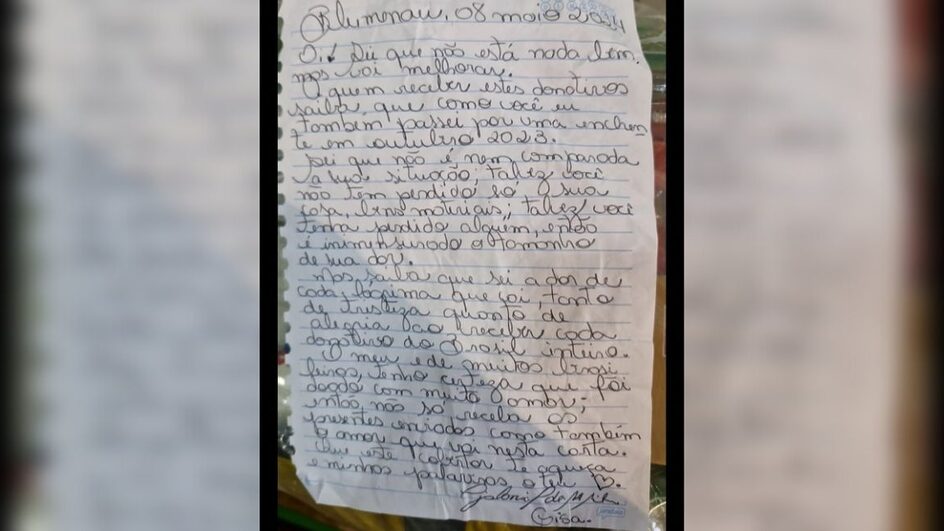 Blumenau, 08 maio 2024
Oi! Sei que não está nada bem.
mas vai melhorar.
O quem receber estes donativos
saiba que como você eu
também passei por uma enchen
te em outubro 2023.
Sei que não é nem comparada
a sua situação, talvez você
não tem perdido só a sua
casa, bens matriais; talvez você
tenha perdido alguém, então
é inimensurado o tamanho
de sua dor.
Mas saiba que sei a dor de
cada lágrima que foi tanto
de tristeza quanto de
alegria ao receber cada
donativo do Brasil inteiro.
O meu e de muitos brasi
leiros, tenho certeza que foi
doado com muito amor;
então não só receba os
presentes enviados como também
o amor que vai nesta carta.
Que este cobertor te aqueça
e minhas palavras o teu ♡.
Gisa.